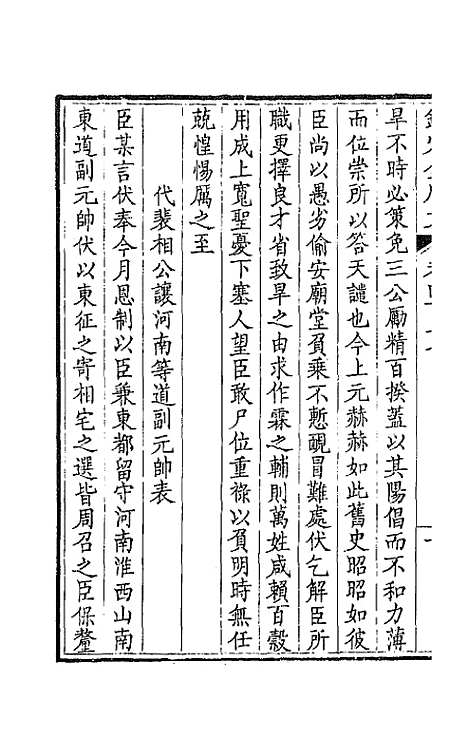 旱不時必策免三公勵精百揆蓋以其陽倡而不和力薄
而位崇所以答天譴也今上元赫赫如此舊史昭昭如彼
臣尚以愚劣偷安廟堂負乗不慙靦冒難處伏乞解臣所
職更擇良才省致旱之由求作霖之輔則萬姓咸賴百穀
用成上寬聖憂下塞人望臣敢尸位重祿以負明時無任
兢惶惕厲之至
代裴相公讓河南等道副元帥表
臣某言伏奉今月恩制以臣乗東都留守河南淮西山南
東道副元帥伏以東征之寄相宅之選皆周召之臣保釐